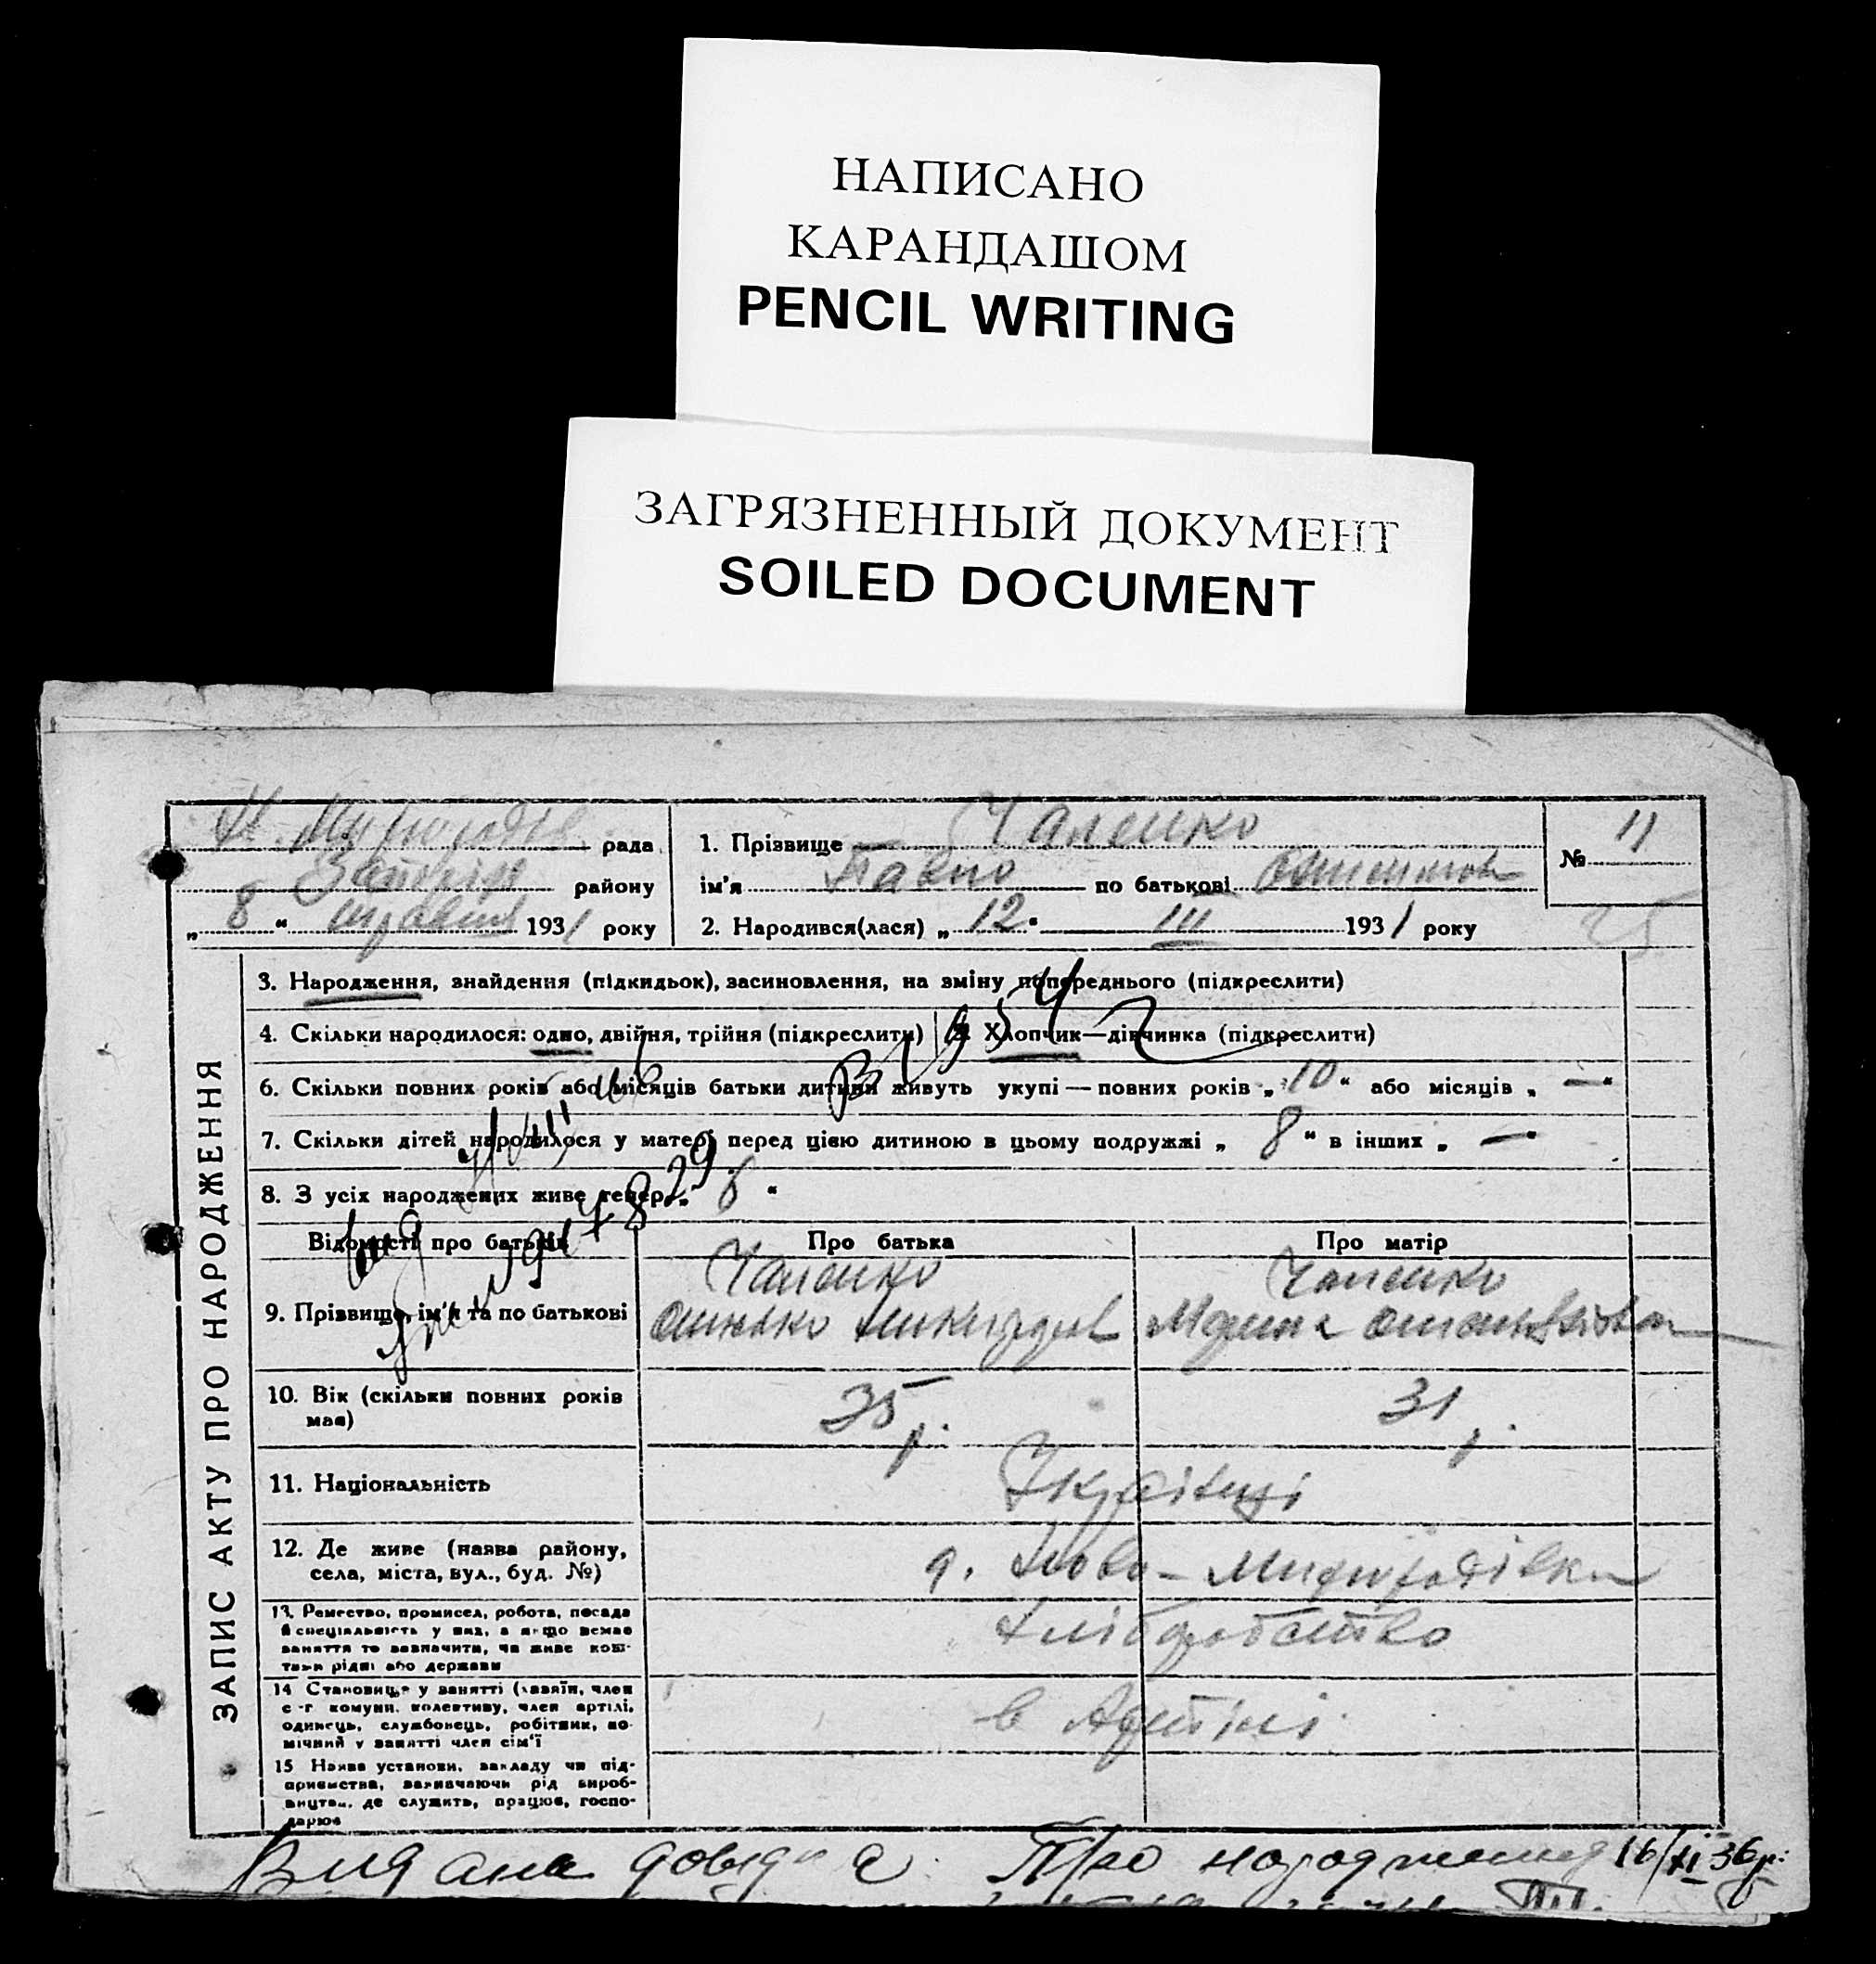 НАПИСАНО
КАРАНДАШОМ
PENCIL WRITING
ЗАГРЯЗНЕННЫЙ ДОКУМЕНТ
SOILED DOCUMENT
рада
району
„ 8 “ травня 1931 року
1. Прізвище Чапенко
ім'я Павло по батькові
2. Народився(лася) „ 12 “ III 1931 року
№ 11
25
ЗАПИС АКТУ ПРО НАРОДЖЕННЯ
3. Народження, знайдення (підкидьок), засиновлення, на зміну попереднього (підкреслити)
4. Скільки народилося: одно, двійня, трійня (підкреслити) Хлопчик—дівчинка (підкреслити)
6. Скільки повних років або місяців батьки дитини живуть укупі — повних років „ 10 “ або місяців „ — “
7. Скільки дітей народилося у матері перед цією дитиною в цьому подружжі „ 8 “ в інших „ — “
8. З усіх народжених живе тепер „ 6 “
Відомості про батьків Про батька Про матір
9. Прізвище, ім'я та по батькові
Чапенко
Чапенко
10. Вік (скільки повних років має)
35 р.
31 р.
11. Національність
Українці
12. Де живе (назва району,
села, міста, вул., буд. №)
13. Ремество, промисел, робота, посада
й спеціальність у них, а якщо немає
заняття то зазначити, чи живе кош-
тами рідні або держави
Хліборобство
14 Становище у занятті (хазяїн, член
с-г комуни, колективу, член артілі,
одинець, службовець, робітник, по-
мічний у занятті член сім'ї
в Артілі
15 Назва установи, закладу чи під-
приємства, зазначаючи рід вироб-
ництва, де служить, працює, госпо-
дарює
Видана довідка Про народження 16/XI 36р.